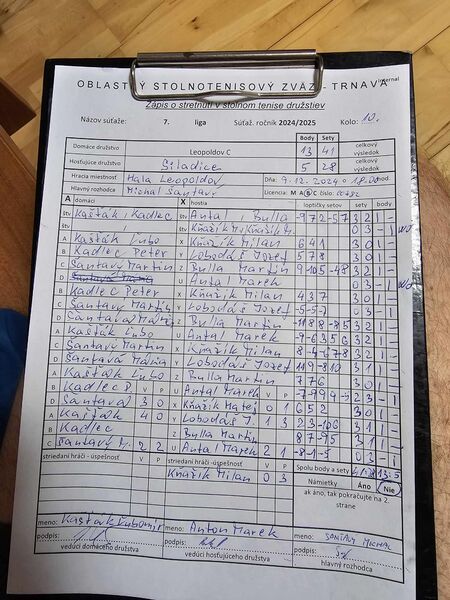 Internal
OBLASTNÝ STOLNOTENISOVÝ ZVÄZ - TRNAVA
Zápis o stretnutí v stolnom tenise družstiev
Názov súťaže: 7. liga Súť. ročník 2024/2025 Kolo: 10.
Body Sety
Domáce družstvo Leopoldov C 13 41 celkový výsledok
Hosťujúce družstvo Siladice 5 28 celkový výsledok
Hracia miestnosť Hala Leopoldov Dňa: 7.12.2024 o 18.00 hod
Hlavný rozhodca Michal Šantavý Licencia: M A B C číslo:
A domáci X hostia loptičky setov sety body
štv Kašťák, Kadlec štv Antal, Bulla -9 7 2 -5 7 3 2 1 -
štv štv Kňažík M, Kňažík M. 0 3 - 1 WO
A Kašťák Ľubo X Kňažík Milan 6 4 1 3 0 1 -
B Kadlec Peter Y Lobodáš Jozef 5 7 8 3 0 1 -
C Šantavý Martin Z Bulla Martin -9 -10 5 -4 8 3 2 1 -
D U Antal Marek 0 3 - 1 WO
B Kadlec Peter X Kňažík Milan 4 3 7 3 0 1 -
C Šantavý Martin Y Lobodáš Jozef -5 -5 -7 0 3 - 1
D Šantavá Mária Z Bulla Martin -11 8 8 -8 5 3 2 1 -
A Kašťák Ľubo U Antal Marek -9 6 3 5 6 3 2 1 -
C Šantavý Martin X Kňažík Milan 8 -4 -6 7 8 3 2 1 -
D Šantavá Mária Y Lobodáš Jozef 3 1 1 -
A Kašťák Ľubo Z Bulla Martin 7 7 6 3 0 1 -
B Kadlec P V P U Antal Marek V P 2 3 - 1
D Šantavá 3 0 X Kňažík Matej 0 1 6 5 2 3 0 1 -
A Kašťák 4 0 Y Lobodáš J. 1 3 2 3 -10 6 3 1 1 -
B Kadlec Z Bulla Martin 8 7 -9 5 3 1 1 -
C Šantavý M. 2 2 U Antal Marek 2 1 -8 -1 -5 0 3 - 1
striedaní hráči -úspešnosť V P striedaní hráči -úspešnosť V P Spolu body a sety 41:28 13:5
Kňažík Milan 0 3 Námietky Áno Nie
ak áno, tak pokračujte na 2. strane
meno: Kašťák Ľubomír meno: Anton Marek meno: ŠANTAVÝ MICHAL
podpis: podpis: podpis:
vedúci domáceho družstva vedúci hosťujúceho družstva hlavný rozhodca